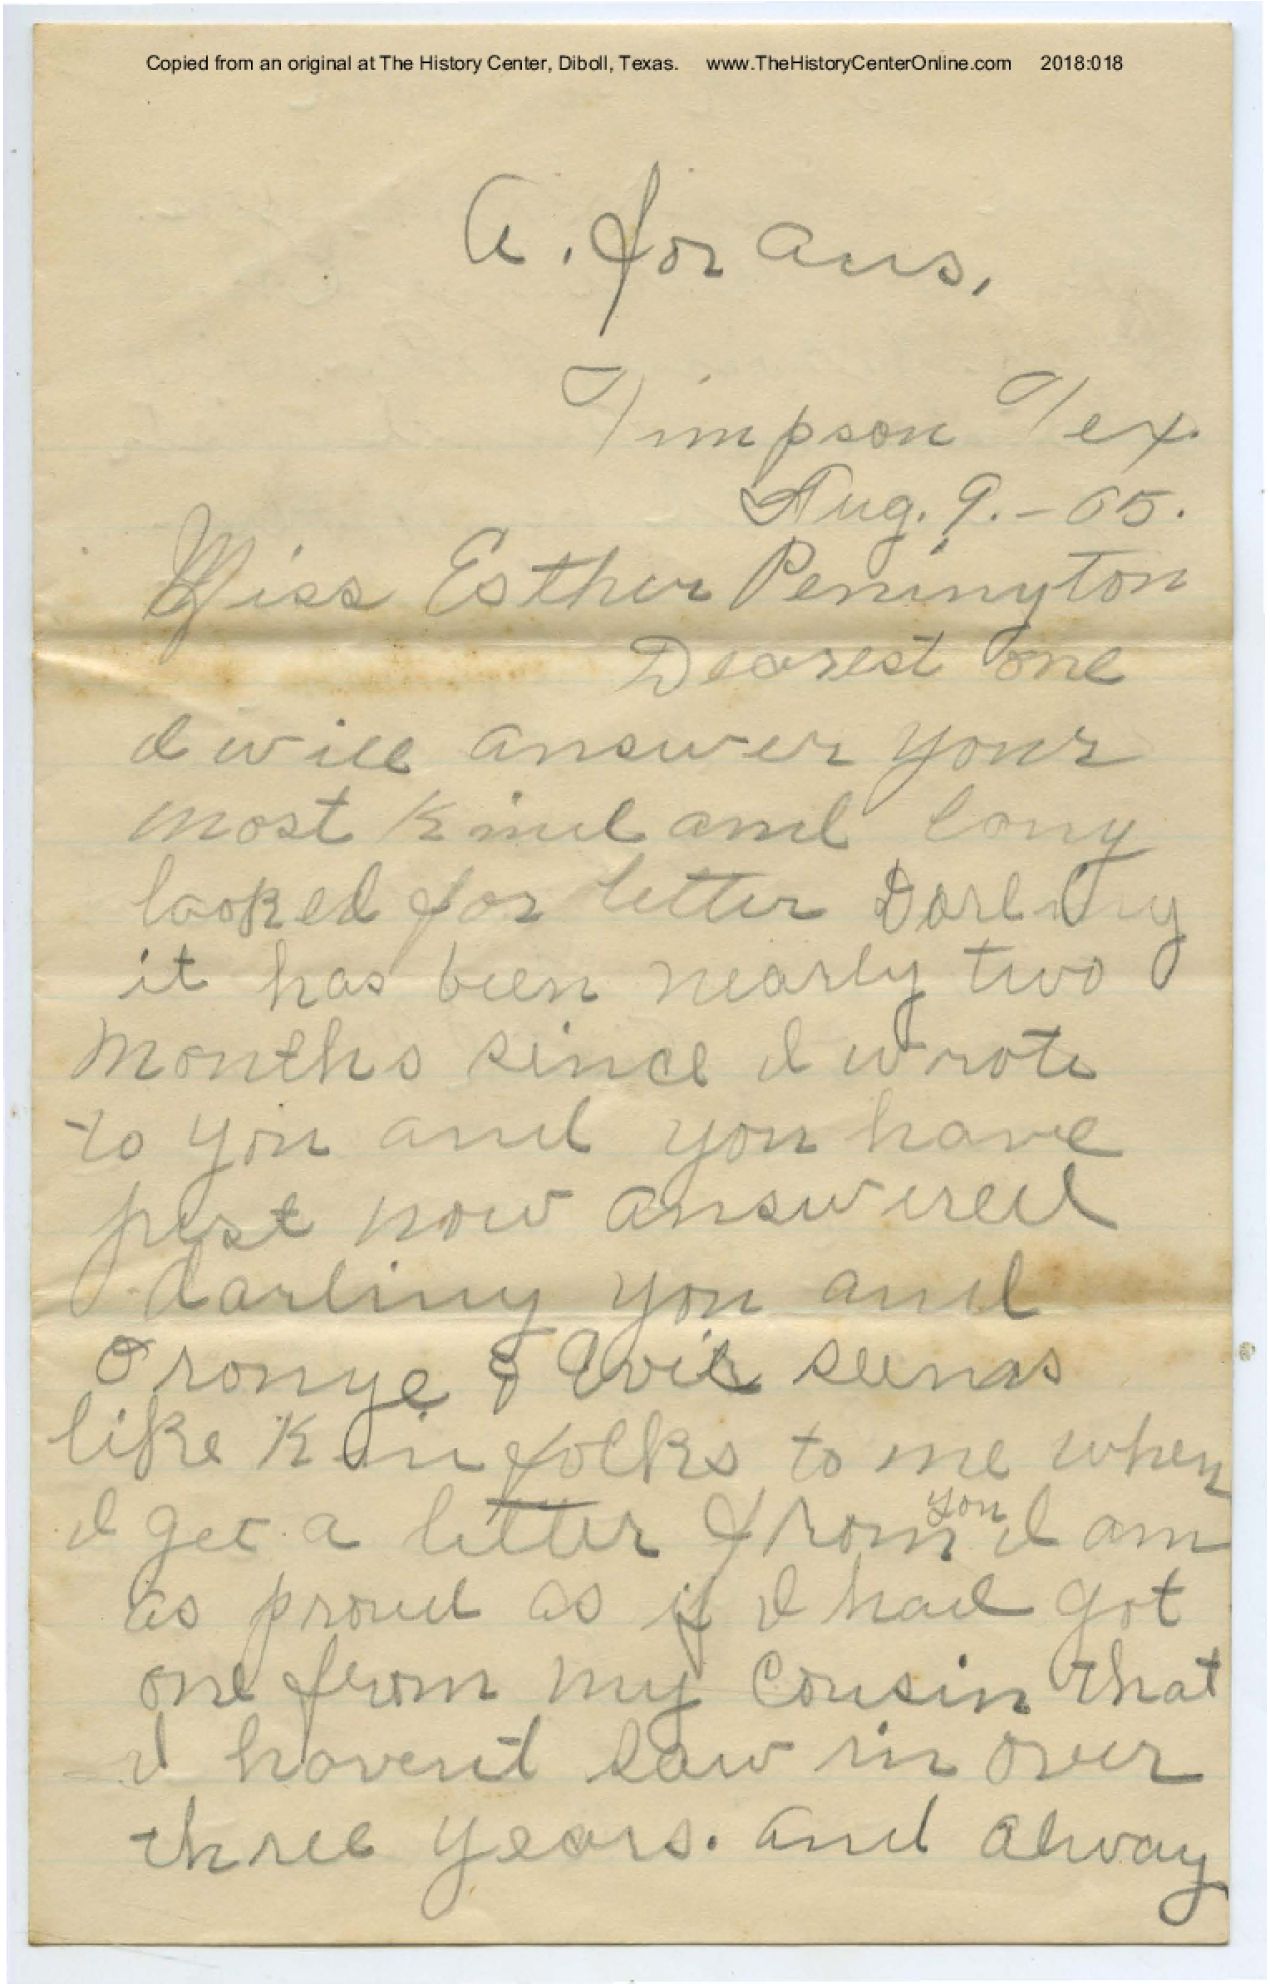 Copied from an original at The History Center, Diboll, Texas. www.TheHistoryCenterOnline.com 2018:018
A. for ans.
Timpson Tex.
Aug. 9. - 05.
Miss Esther Penington
Dearest one
I will answer your
most kind and long
looked for letter Darling
it has been nearly two
months since I wrote
to you and you have
just now answered
darling you and
Oronge & Evir seems
like Kin folks to me when
I get a letter from you I am
as proud as if I had got
one from my Cousin that
I havent saw in over
three years. and alway